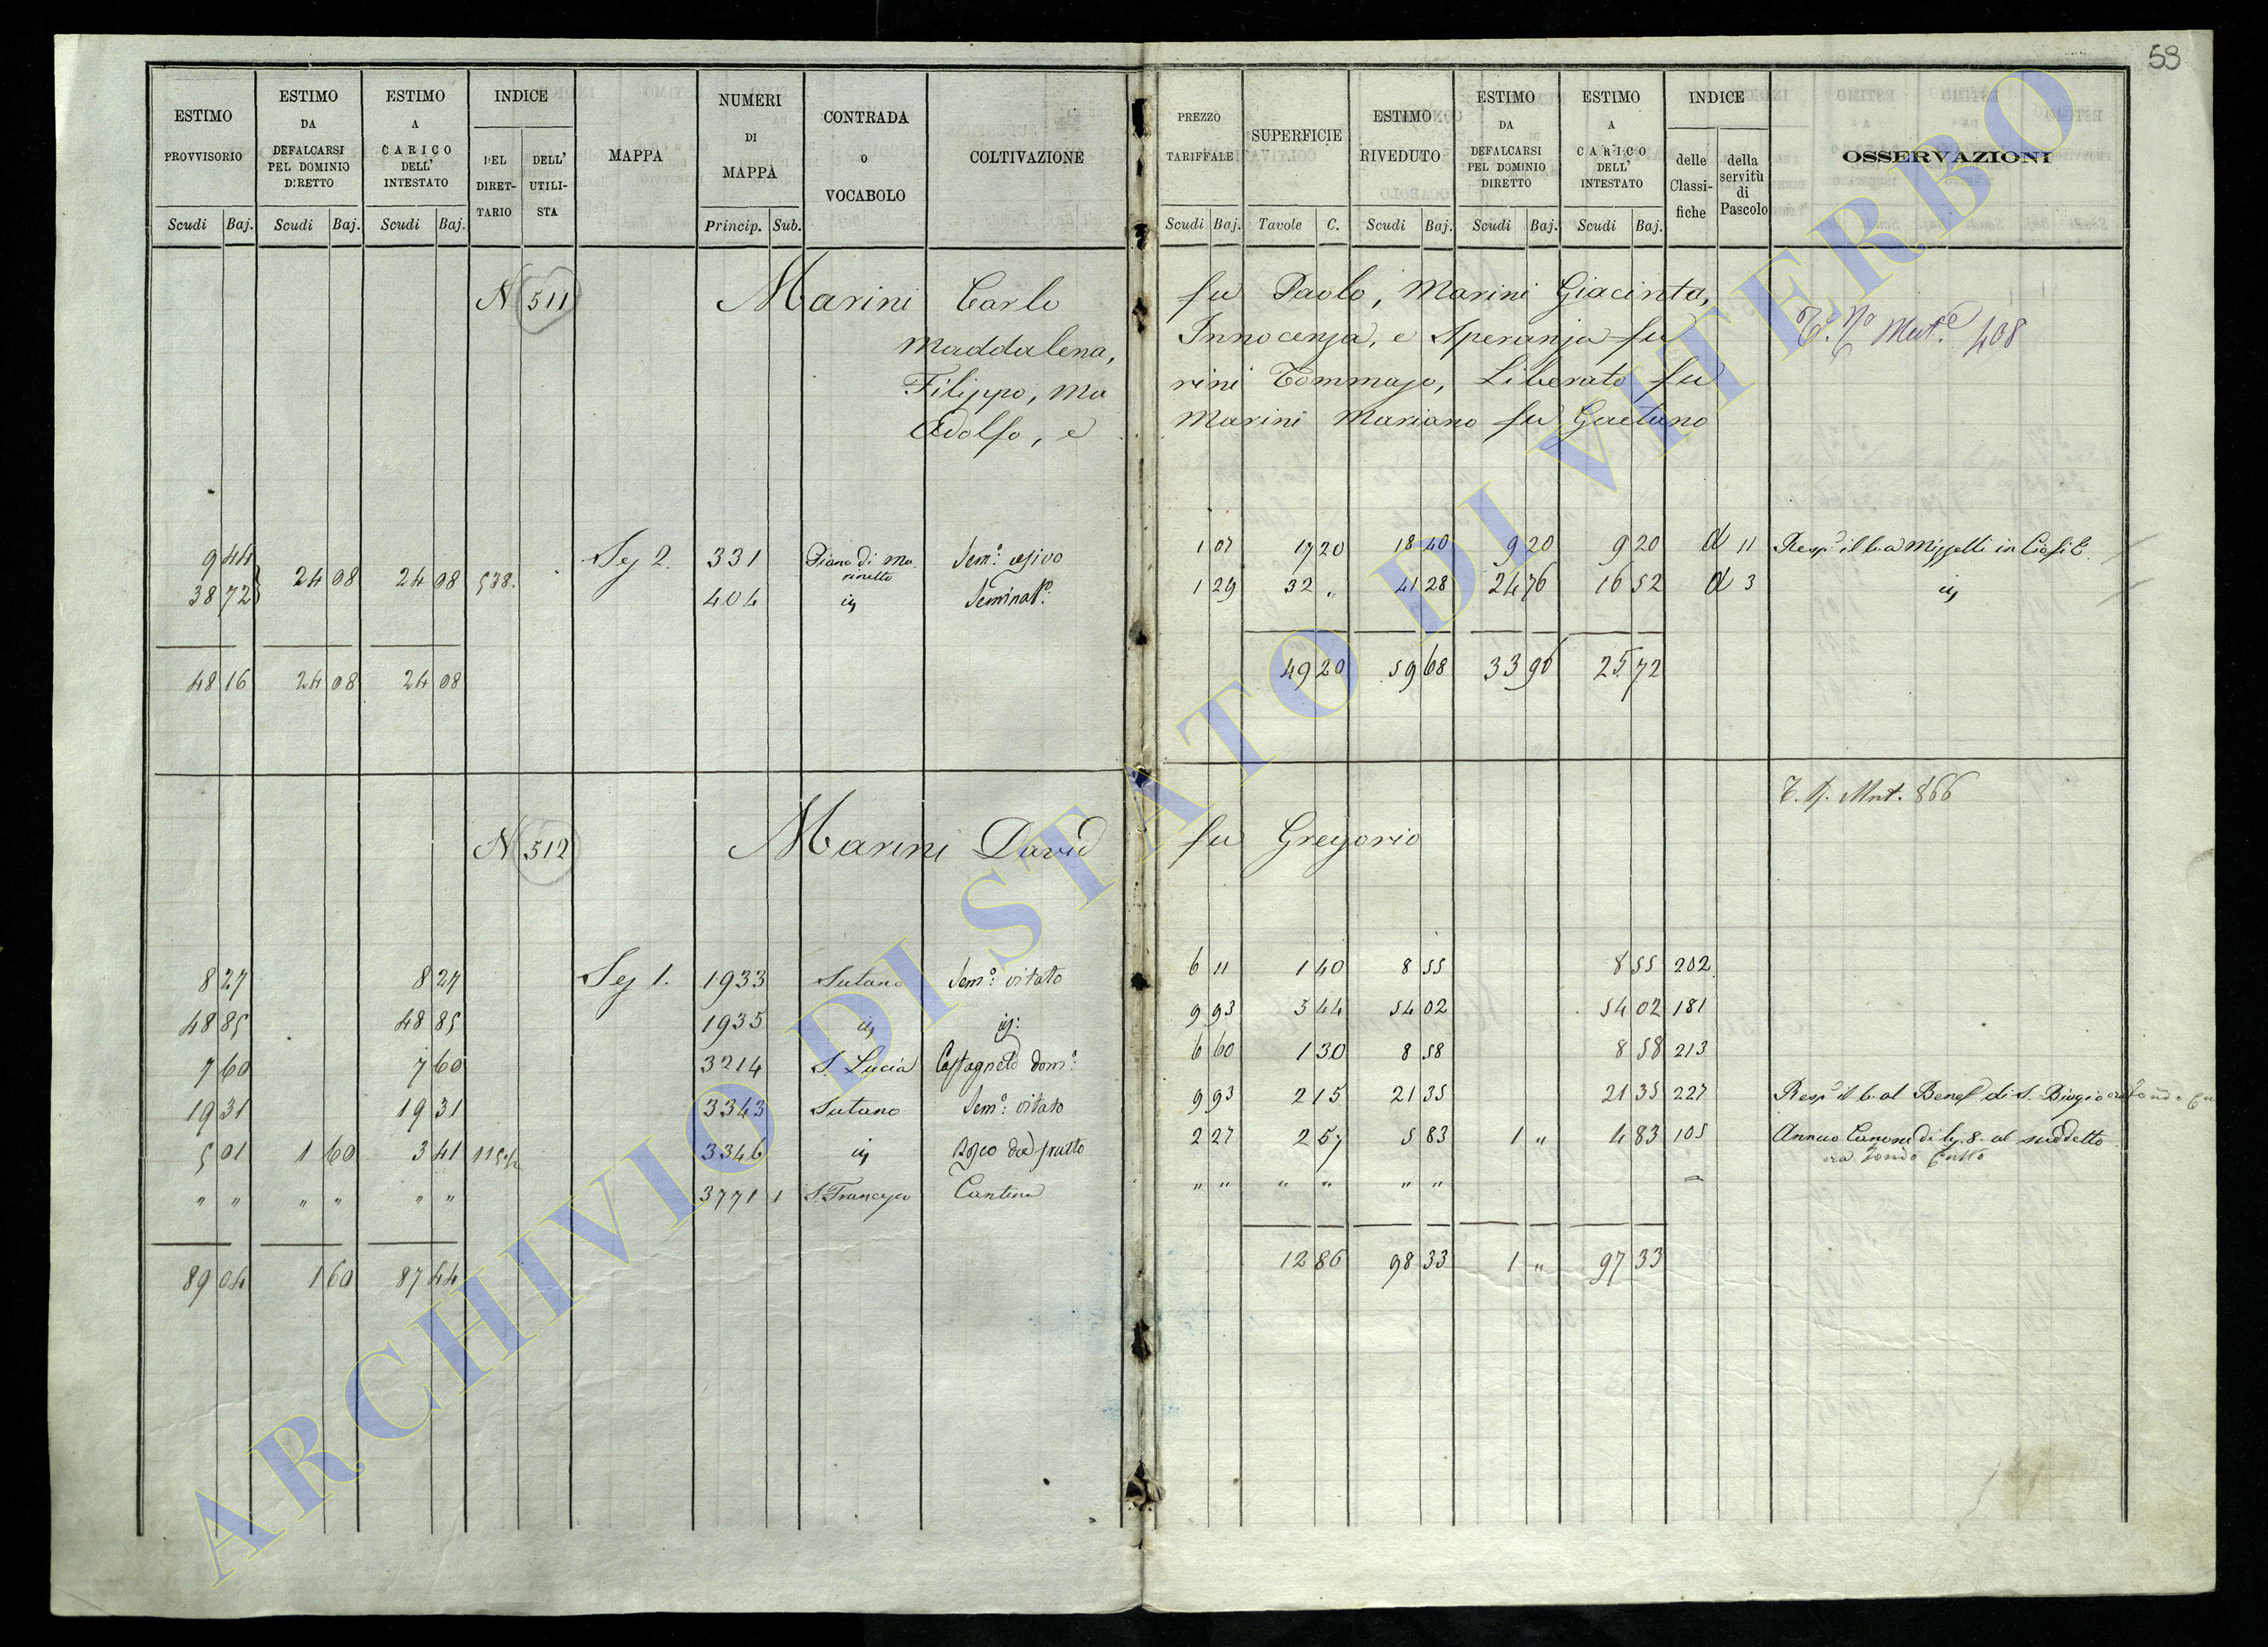 53
ESTIMO PROVVISORIO | ESTIMO DA DEFALCARSI PEL DOMINIO DIRETTO | ESTIMO A CARICO DELL' INTESTATO | INDICE DEL DIRETTARIO | DELL' UTILISTA | MAPPA | NUMERI DI MAPPA | CONTRADA O VOCABOLO | COLTIVAZIONE | PREZZO TARIFFALE | SUPERFICIE | ESTIMO RIVEDUTO | ESTIMO DA DEFALCARSI PEL DOMINIO DIRETTO | ESTIMO A CARICO DELL' INTESTATO | INDICE delle Classifiche | della servitù di Pascolo | OSSERVAZIONI
Scudi Baj. | Scudi Baj. | Scudi Baj. | Princip. Sub. | Scudi Baj. | Tavole C. | Scudi Baj. | Scudi Baj. | Scudi Baj.
N 511 Marini Carlo fu Paolo, Marini Giacinta,
Maddalena, Innocenza, e Speranza fu
Filippo, Marini Tommaso, Liberato fu
Adolfo, e Marini Mariano fu Gaetano
Mut. 408
9 44 | 24 08 | 24 08 | 538. | Sez 2. | 331 | Piano di Marinetto | Sem.o | 1 07 | 17 20 | 18 40 | 9 20 | 9 20 | d 11 | Resp.
38 72 | 404 | id | Seminat.o | 1 29 | 32 " | 41 28 | 24 76 | 16 52 | d 3 | id
48 16 | 24 08 | 24 08 | 49 20 | 59 68 | 33 96 | 25 72
T. N. Mut. 866
N 512 Marini David fu Gregorio
8 27 | 8 27 | Sez 1. | 1933 | Sutano | Sem.o vitato | 6 11 | 1 40 | 8 55 | 8 55 | 202
48 85 | 48 85 | 1935 | id | id: | 9 93 | 5 44 | 54 02 | 54 02 | 181
7 60 | 7 60 | 3214 | S. Lucia | Castagneto dom.o | 6 60 | 1 30 | 8 58 | 8 58 | 213
19 31 | 19 31 | 3343 | Sutano | Sem.o vitato | 9 93 | 2 15 | 21 35 | 21 35 | 227 | Resp. il b. al Benef. di S. Biagio ora
5 01 | 1 60 | 3 41 | 3346 | id | Bosco da frutto | 2 27 | 2 57 | 5 83 | 1 " | 4 83 | 105 | Annuo Canone di 8. al suddetto
ora Fondo Culto
" " | " " | " " | 3771 1 | S. Francesco | Cantina | " " | " " | " "
89 04 | 1 60 | 87 44 | 12 86 | 98 33 | 1 " | 97 33
ARCHIVIO DI STATO DI VITERBO